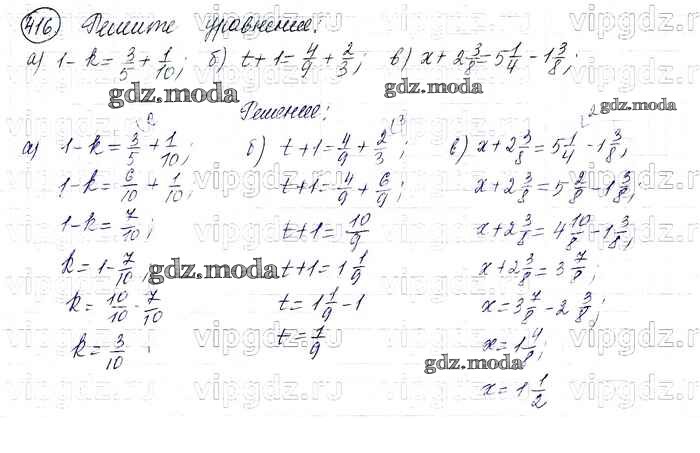 416 Решите уравнение:
а) 1 - k = 3/5 + 1/10; б) t + 1 = 4/9 + 2/3; в) x + 2 3/8 = 5 1/4 - 1 3/8;
Решение:
а) 1 - k = 3/5 + 1/10;
1 - k = 6/10 + 1/10;
1 - k = 7/10;
k = 1 - 7/10;
k = 10/10 - 7/10
k = 3/10
б) t + 1 = 4/9 + 2/3;
t + 1 = 4/9 + 6/9;
t + 1 = 10/9
t + 1 = 1 1/9
t = 1 1/9 - 1
t = 1/9
в) x + 2 3/8 = 5 1/4 - 1 3/8;
x + 2 3/8 = 5 2/8 - 1 3/8;
x + 2 3/8 = 4 10/8 - 1 3/8;
x + 2 3/8 = 3 7/8;
x = 3 7/8 - 2 3/8;
x = 1 4/8;
x = 1 1/2
gdz.moda
gdz.moda
gdz.moda
gdz.moda
gdz.moda
vipgdz.ru